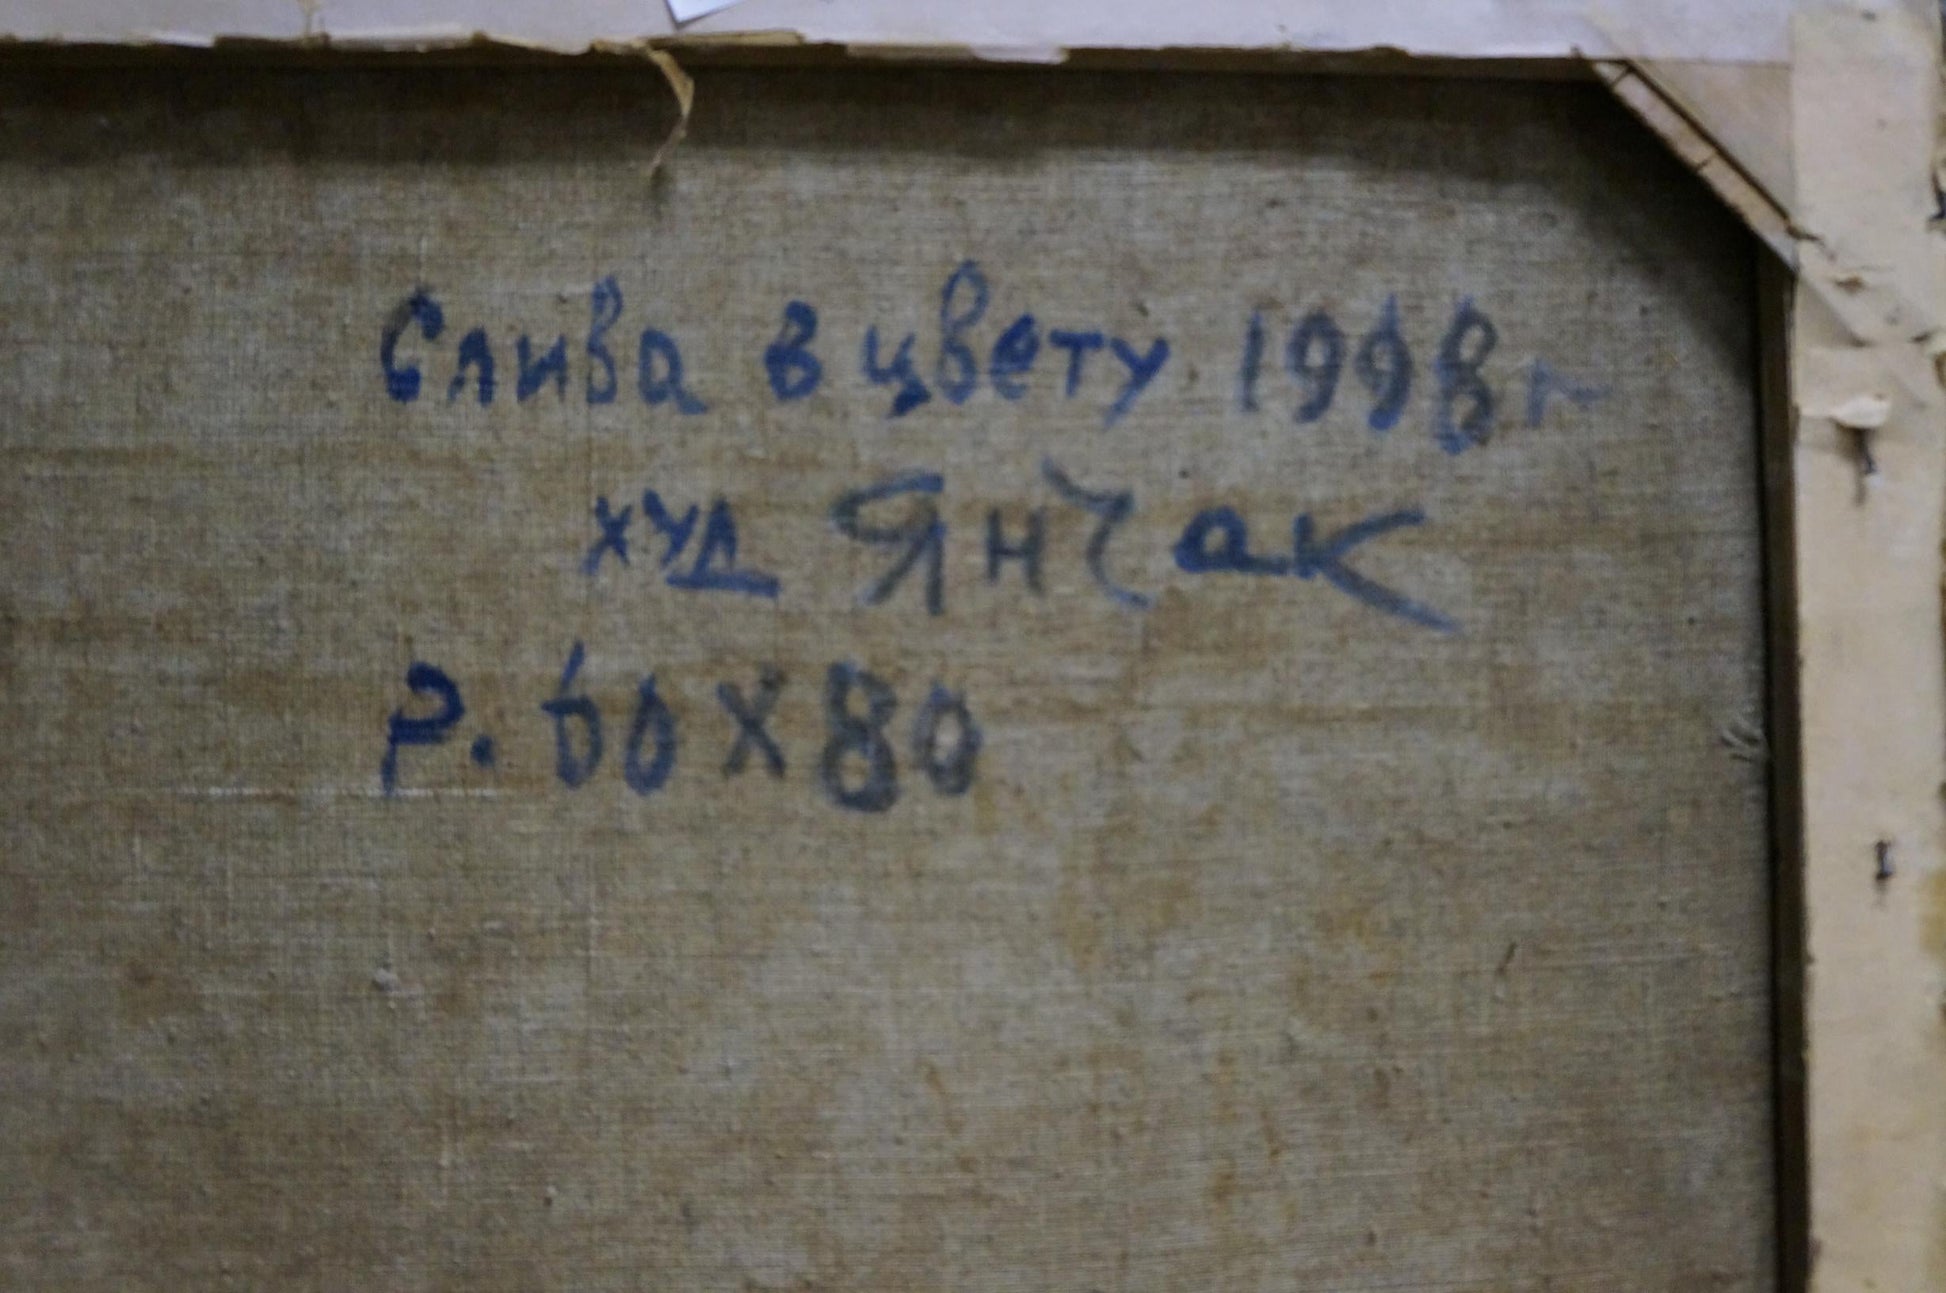 Слива в цвету 1998 г
худ Янчак
Р. 60х80